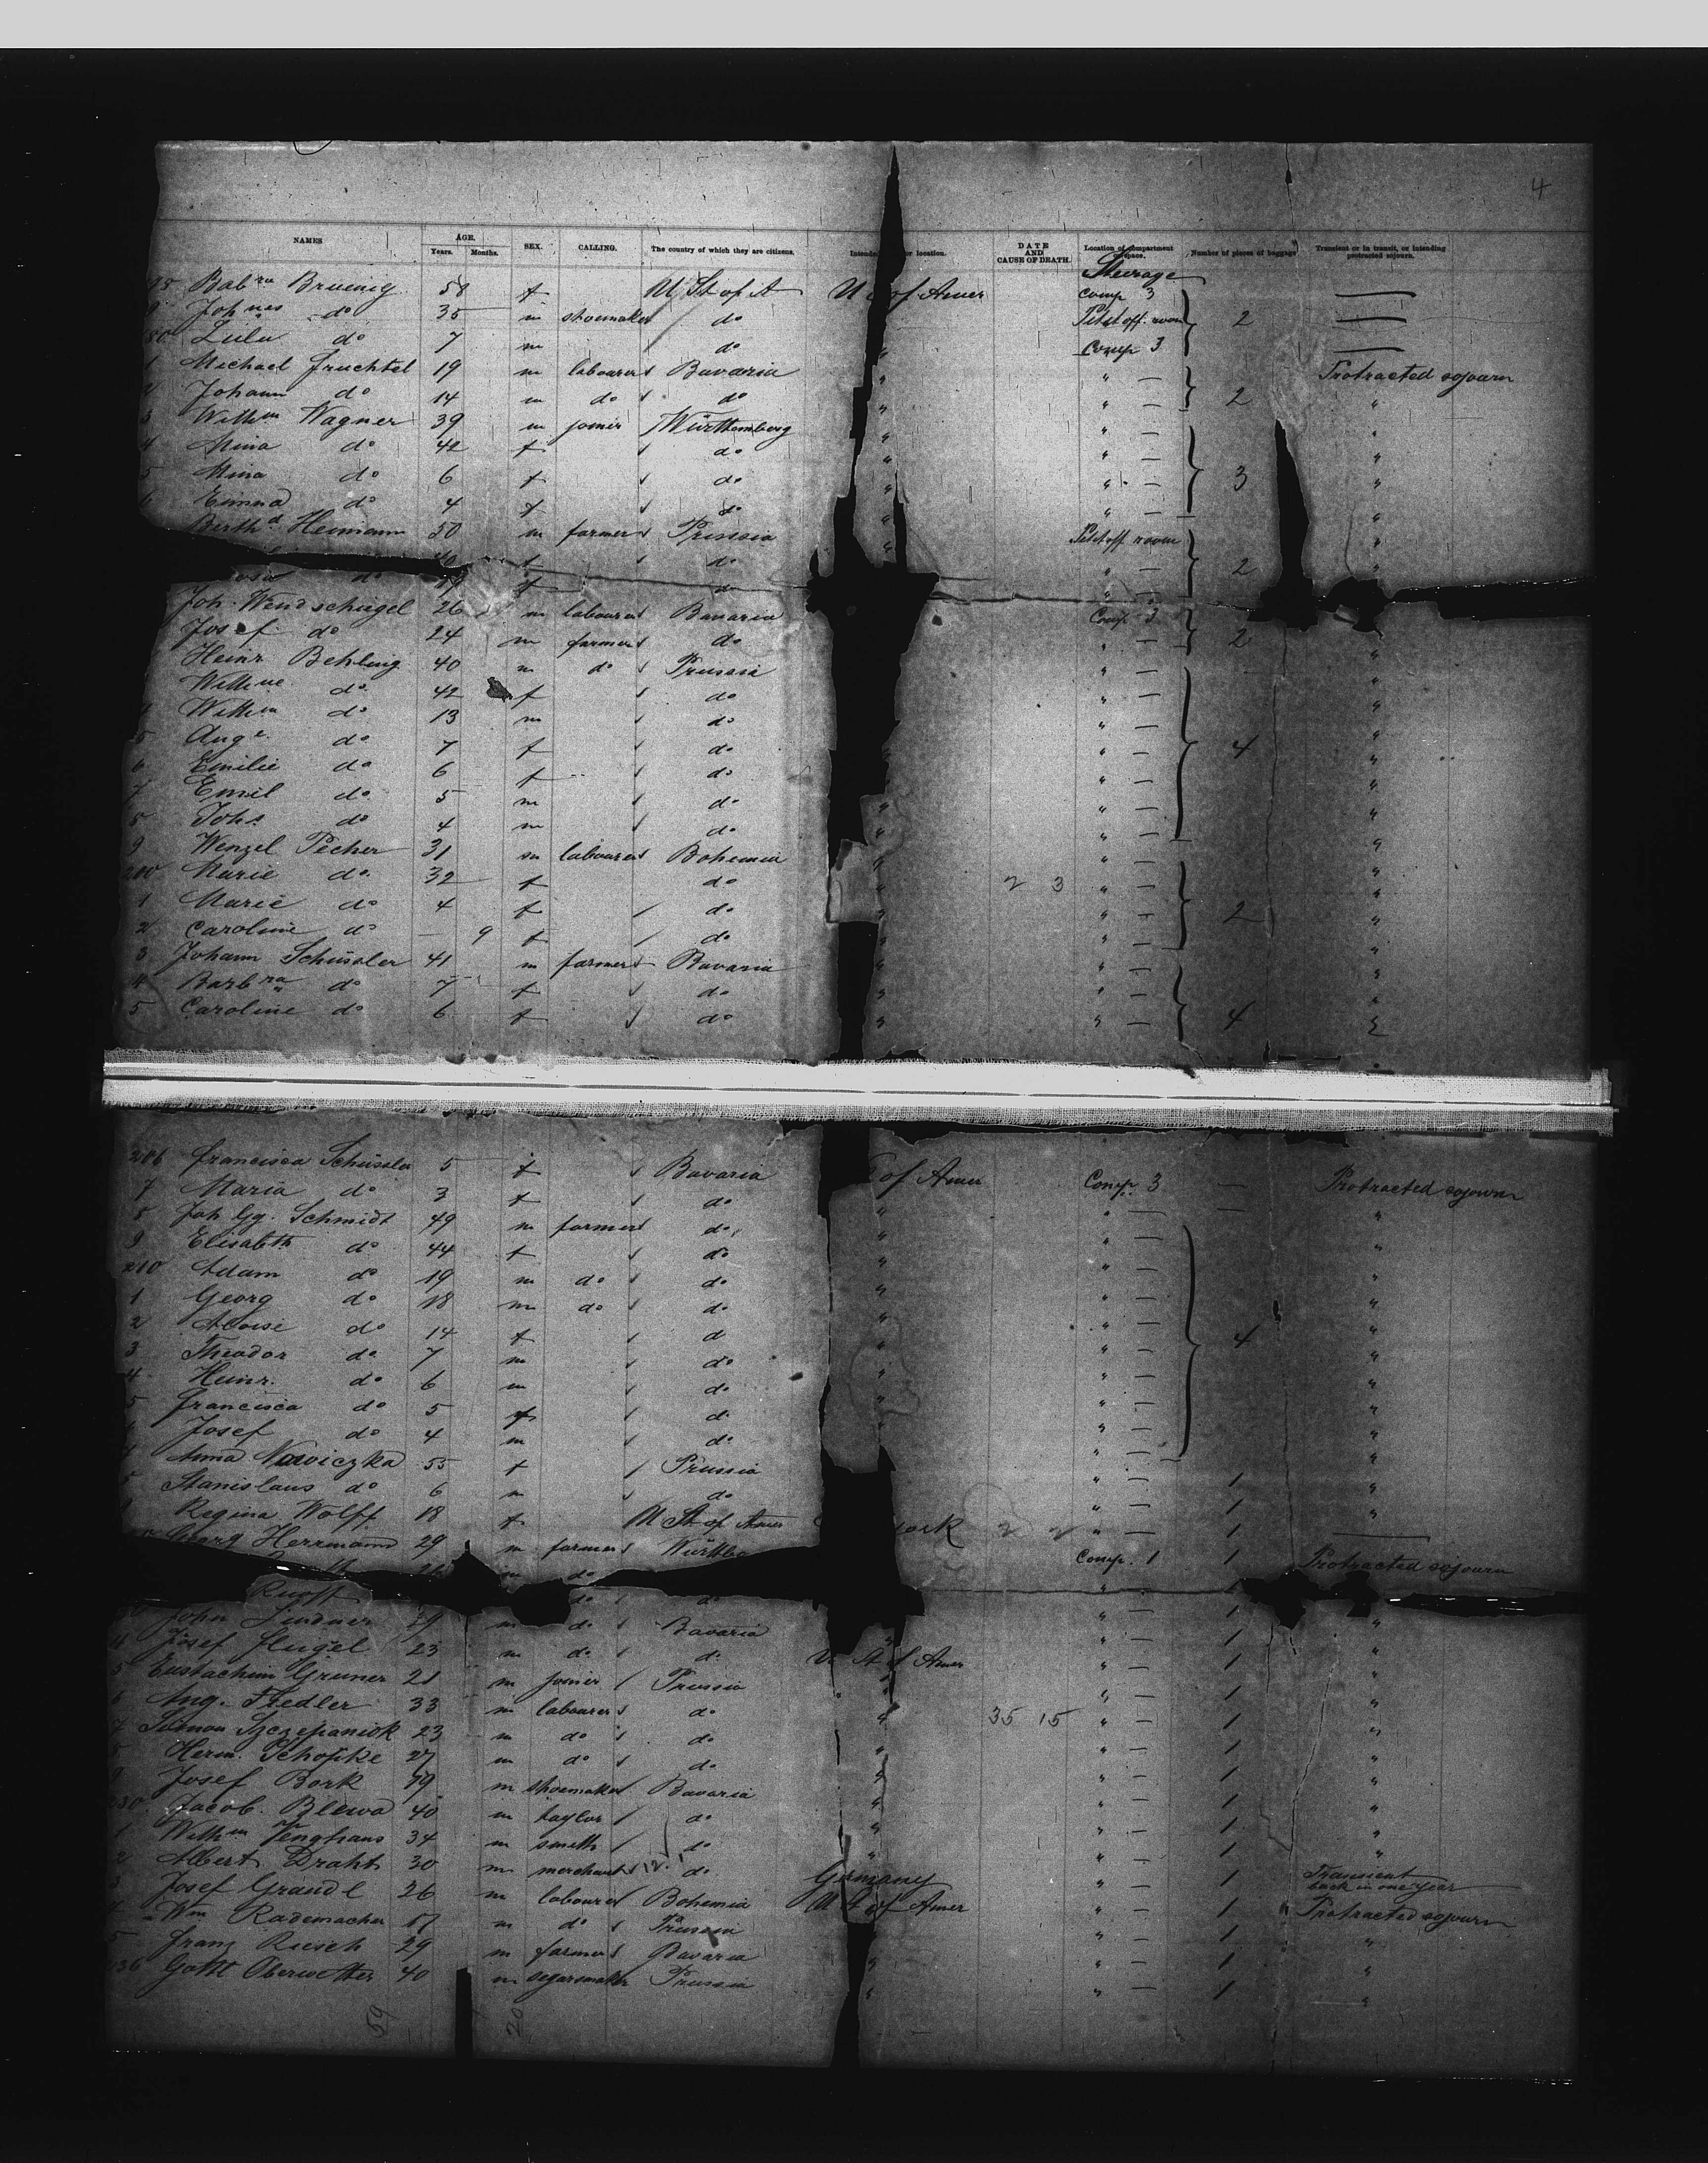 4
NAMES AGE. Years. Months. SEX. CALLING. The country of which they are citizens. Intended or location. DATE AND CAUSE OF DEATH. Location of compartment or space. Number of pieces of baggage Transient or in transit, or intending protracted sojourn.
Steerage
Babra Bruenig 58 f U St of A U of Amer Comp 3
9 Johnes do 35 m shoemaker do 2
80 Lulu do 7 m do " Comp 3
1 Michael Fruchtel 19 m labourer Bavaria " " — Protracted sojourn
2 Johann do 14 m do do " " — 2 "
3 Willm Wagner 39 m joiner Württemberg " " — "
4 Mina do 42 f do " " — "
5 Mina do 6 f do " " — 3 "
6 Emma do 4 f do " " — "
Berthd Heimann 50 m farmer Prussia " "
40 f do " — 2 "
do f do
Joh. Wendschiegel 26 m labourer Bavaria Comp 3
Josef do 24 m farmer do " — 2 "
Heinr Behling 40 m do Prussia " — "
Willme do 42 f do " — "
Willm do 13 m do " — "
5 Auge do 7 f do " — 4 "
6 Emilie do 6 f do " — "
7 Emil do 5 m do " " — "
8 Johs do 4 m do " " — "
9 Wenzel Pecher 31 m labourer Bohemia " " — "
200 Marie do 32 f do " 2 3 " — "
1 Marie do 4 f do " " — 2 "
2 Caroline do — 9 f do " " — "
3 Johann Schüssler 41 m farmer Bavaria " " — "
4 Barbra do 7 f do " " — "
5 Caroline do 6 f do " " — 4 "
206 Francisca Schüssler 5 f Bavaria of Amer Comp. 3 — Protracted sojourn
7 Maria do 3 f do " " — — "
8 Joh Gg. Schmidt 49 m farmer do " " — "
9 Elisabeth do 44 f do " " — "
210 Adam do 19 m do do " " — "
1 Georg do 18 m do do " " — "
2 Aloise do 14 f d " " — 4 "
3 Theodor do 7 m do " " — "
4 Heinr. do 6 m do " " — "
5 Francisca do 5 f do " " — "
Josef do 4 m do " " — "
Anna Nowiczka 55 f Prussia " — 1 "
Stanislaus do 6 m do " — 1 "
Regina Wolff 18 f U St of Amer York 2 2 " — 1
Georg Herrmann 29 m farmer Comp. 1 1 Protracted sojourn
m do
Rupff do do " — 1 "
John Lindner 29 m do Bavaria " " — 1 "
4 Josef Flügel 23 m do do U. St of Amer " — 1 "
5 Eustachius Gruner 21 m joiner Prussia " " — 1 "
6 Aug. Fiedler 33 m labourer do " 35 15 " — 1 "
7 Simon Szczepaniak 23 m do do " " — 1 "
8 Herm. Schopke 27 m do do " " — 1 "
9 Josef Bork 19 m shoemaker Bavaria " " — 1 "
230 Jacob. Blewa 40 m taylor do " " — 1 "
1 Willm Jenghaus 34 m smith do " " — 1 "
2 Albert Draht 30 m merchant do Germany " — 1 Transient back in one year
3 Josef Grandl 26 m labourer Bohemia U St of Amer " — 1 Protracted sojourn
4 Wm Rademacher 17 m do Prussia " " — 1 "
5 Franz Riesch 29 m farmer Bavaria " " — 1 "
236 Gottl Oberwetter 40 m segarmaker Prussia " " — 1 "
59 20